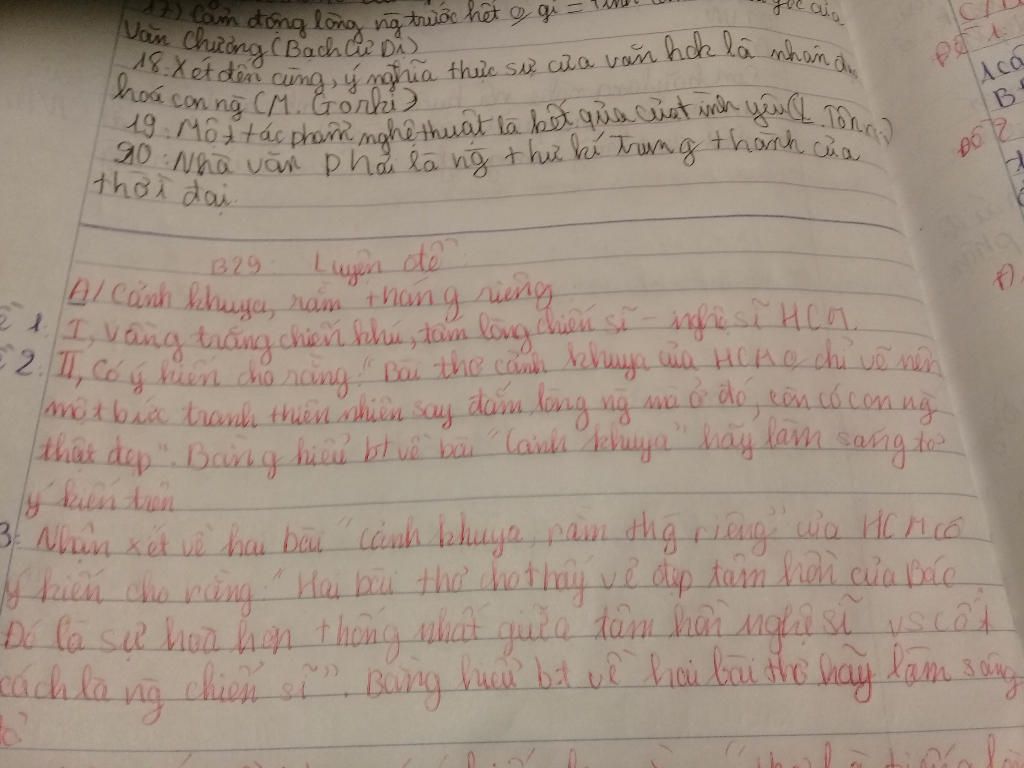 17) Cảm động lòng ng trước hết o gì = tình gốc của
Văn Chương (Bạch Cư Dị)
18. Xét đến cùng, ý nghĩa thực sự của văn hok là nhân đ
hoá con ng (M. Gorki)
19: Một tác phẩm nghệ thuật là kết qủa của tình yêu (L. Tôn
20: Nhà văn phải là ng thư kí trung thành của
thời đại
B29: Luyện đề
A/ Cảnh khuya, rằm tháng riêng
1. I, Vầng trăng chiến khu, tấm lòng chiến sĩ - nghệ sĩ HCM.
2. II, Có ý kiến cho rằng: "Bài thơ cảnh khuya của HCM o chỉ vẽ nên
một bức tranh thiên nhiên say đắm lòng ng mà ở đó, còn có con ng
thật đẹp". Bằng hiểu bt về bài "Cảnh khuya" hãy làm sáng tỏ
ý kiến trên
3: Nhận xét về hai bài "cảnh khuya, rằm thg riêng" của HCM có
ý kiến cho rằng: "Hai bài thơ cho thấy vẻ đẹp tâm hồn của Bác
Đó là sự hoà hợp thống nhất giữa tâm hồn nghệ sĩ vs cốt
cách là ng chiến sĩ". Bằng hiểu bt về hai bài thơ hãy làm sáng
tỏ
Đề 1.
Đề 2